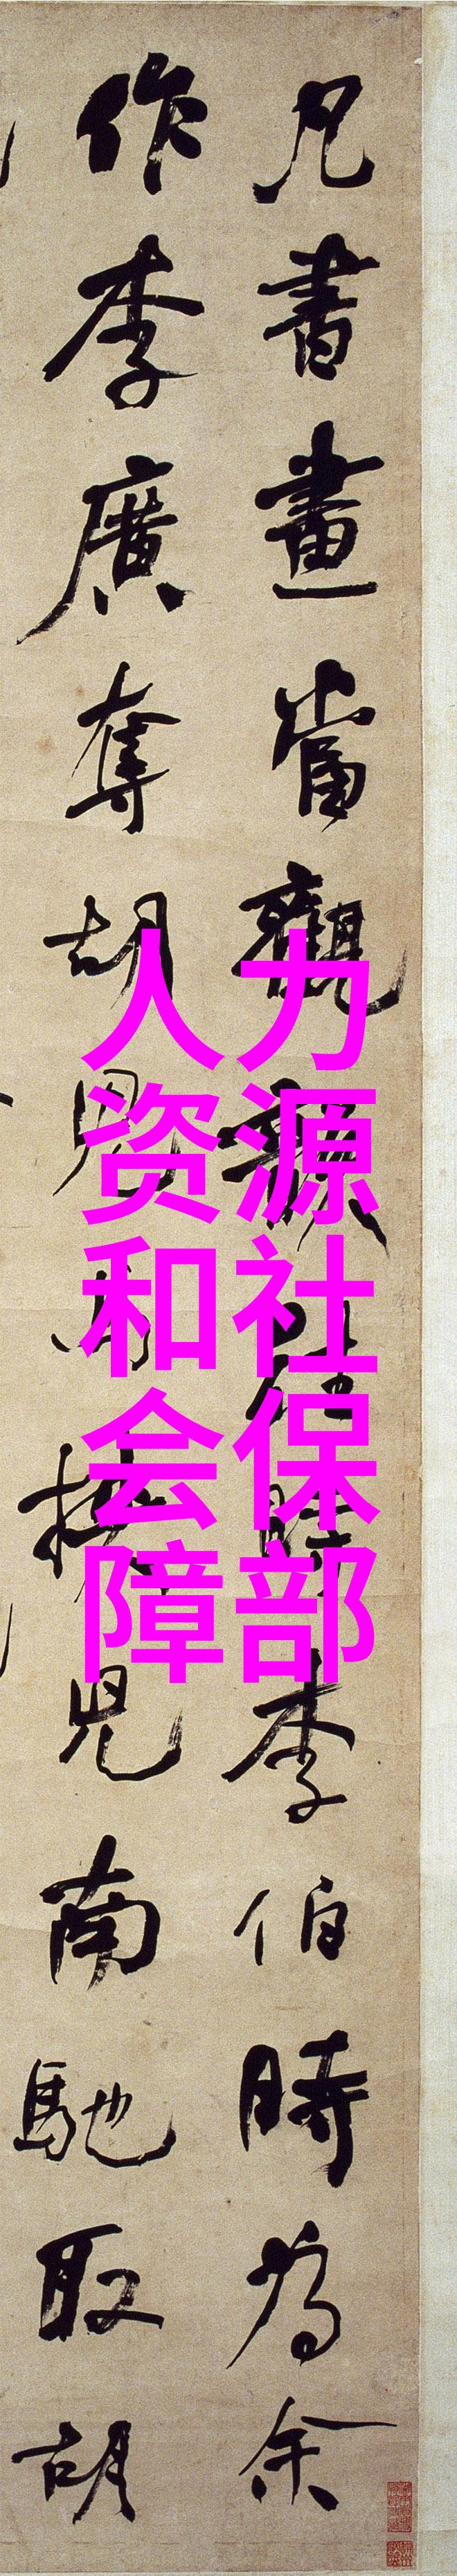 凡書畫當觀韻往時李伯時為余
作李廣奪胡兒馬挾兒南馳取胡
人力
资源
和社
会保
障部